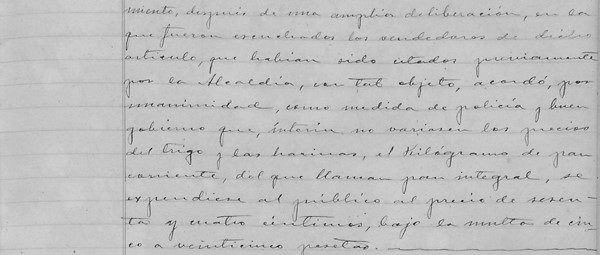 miento, después de una amplia deliberación, en la
que fueron escuchados los vendedores de dicho
artículo, que habían sido citados previamente
por la Alcaldía, con tal objeto, acordó, por
unanimidad, como medida de policía y buen
gobierno que, ínterin no variasen los precios
del trigo y las harinas, el Kilógramo de pan
corriente, del que llaman pan integral, se
expendiese al público al precio de sesen-
ta y cuatro céntimos, bajo la multa de cin-
co a veinticinco pesetas.